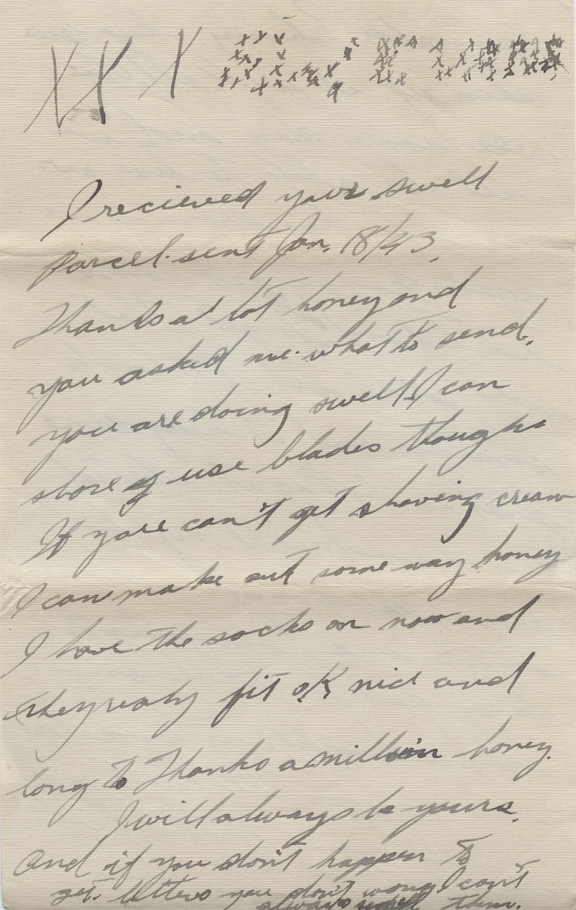 X X X
I recieved your swell
Parcel sent Jan. 18/43.
Thanks a lot honey and
you asked me what to send,
you are doing swell I can
use blades though
If youre can't get shaving cream
I can make out some way honey
I have the socks on now and
they realy fit ok nice and
long to Thanks a million honey.
I will always be yours.
And if you don't happen to
get letters you don't worry I can't
always them.